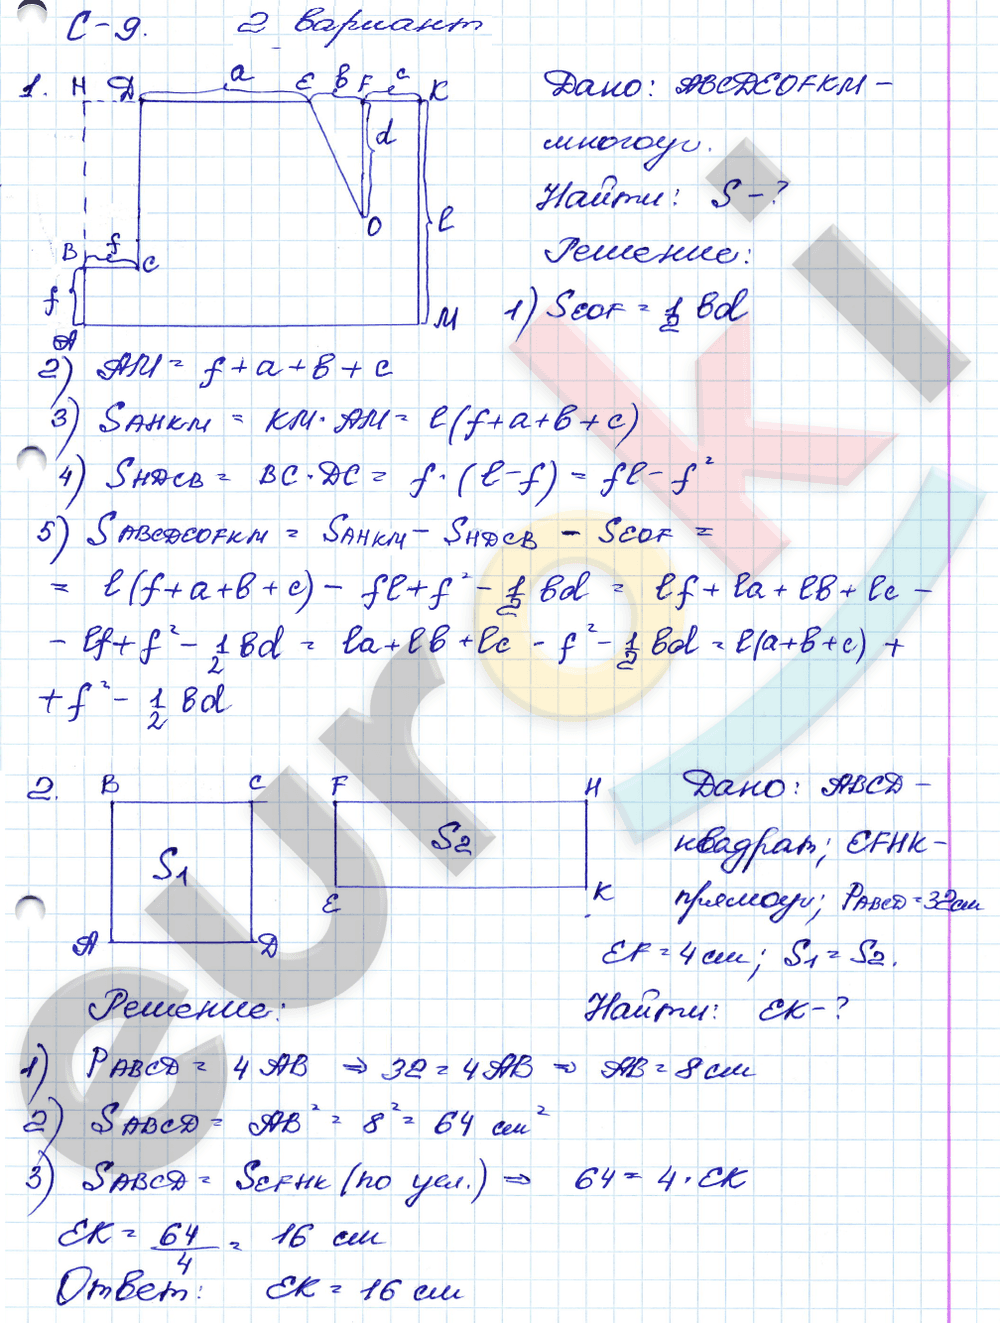 С-9. 2 вариант
1. H D a E b F c K
d
O
l
B f C
f
A M
Дано: ABCDEOFKM -
многоуг.
Найти: S - ?
Решение:
1) SEOF = 1/2 bd
2) AM = f + a + b + c
3) SAHKM = KM · AM = l(f + a + b + c)
4) SHDCB = BC · DC = f · (l - f) = fl - f²
5) SABCDEOFKM = SAHKM - SHDCB - SEOF =
= l(f + a + b + c) - fl + f² - 1/2 bd = lf + la + lb + lc -
- lf + f² - 1/2 bd = la + lb + lc - f² - 1/2 bd = l(a + b + c) +
+ f² - 1/2 bd
2. B C F H
S1 S2
A D E K
Дано: ABCD -
квадрат; EFHK -
прямоуг; PABCD = 32 см
EF = 4 см; S1 = S2.
Найти: EK - ?
Решение:
1) PABCD = 4 AB ⇒ 32 = 4 AB ⇒ AB = 8 см
2) SABCD = AB² = 8² = 64 см²
3) SABCD = SEFHK (по усл.) ⇒ 64 = 4 · EK
EK = 64/4 = 16 см
Ответ: EK = 16 см
euroki